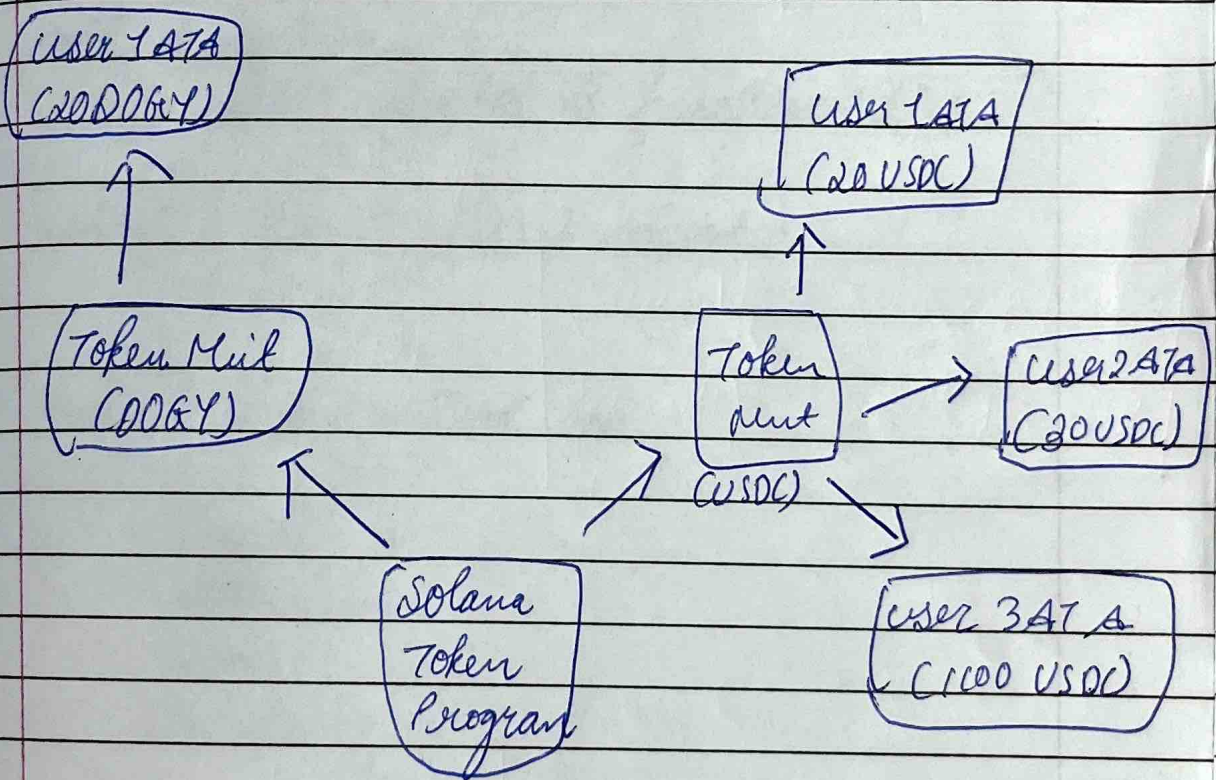 User 1 ATA
(20 DOGY)
User 1 ATA
(20 USDC)
Token Mint
(DOGY)
Token
Mint
(USDC)
User 2 ATA
(20 USDC)
Solana
Token
Program
User 3 ATA
USDC)